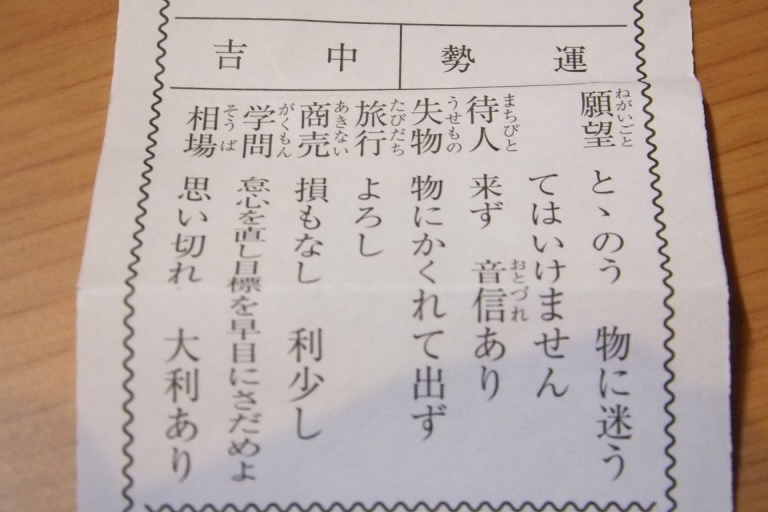 運勢
中吉
願望 ねがいごと とゝのう 物に迷う
てはいけません
待人 まちびと 来ず 音信 おとづれ あり
失物 うせもの 物にかくれて出ず
旅行 たびだち よろし
商売 あきない 損もなし 利少し
学問 がくもん 怠心を直し目標を早目にさだめよ
相場 そうば 思い切れ 大利あり